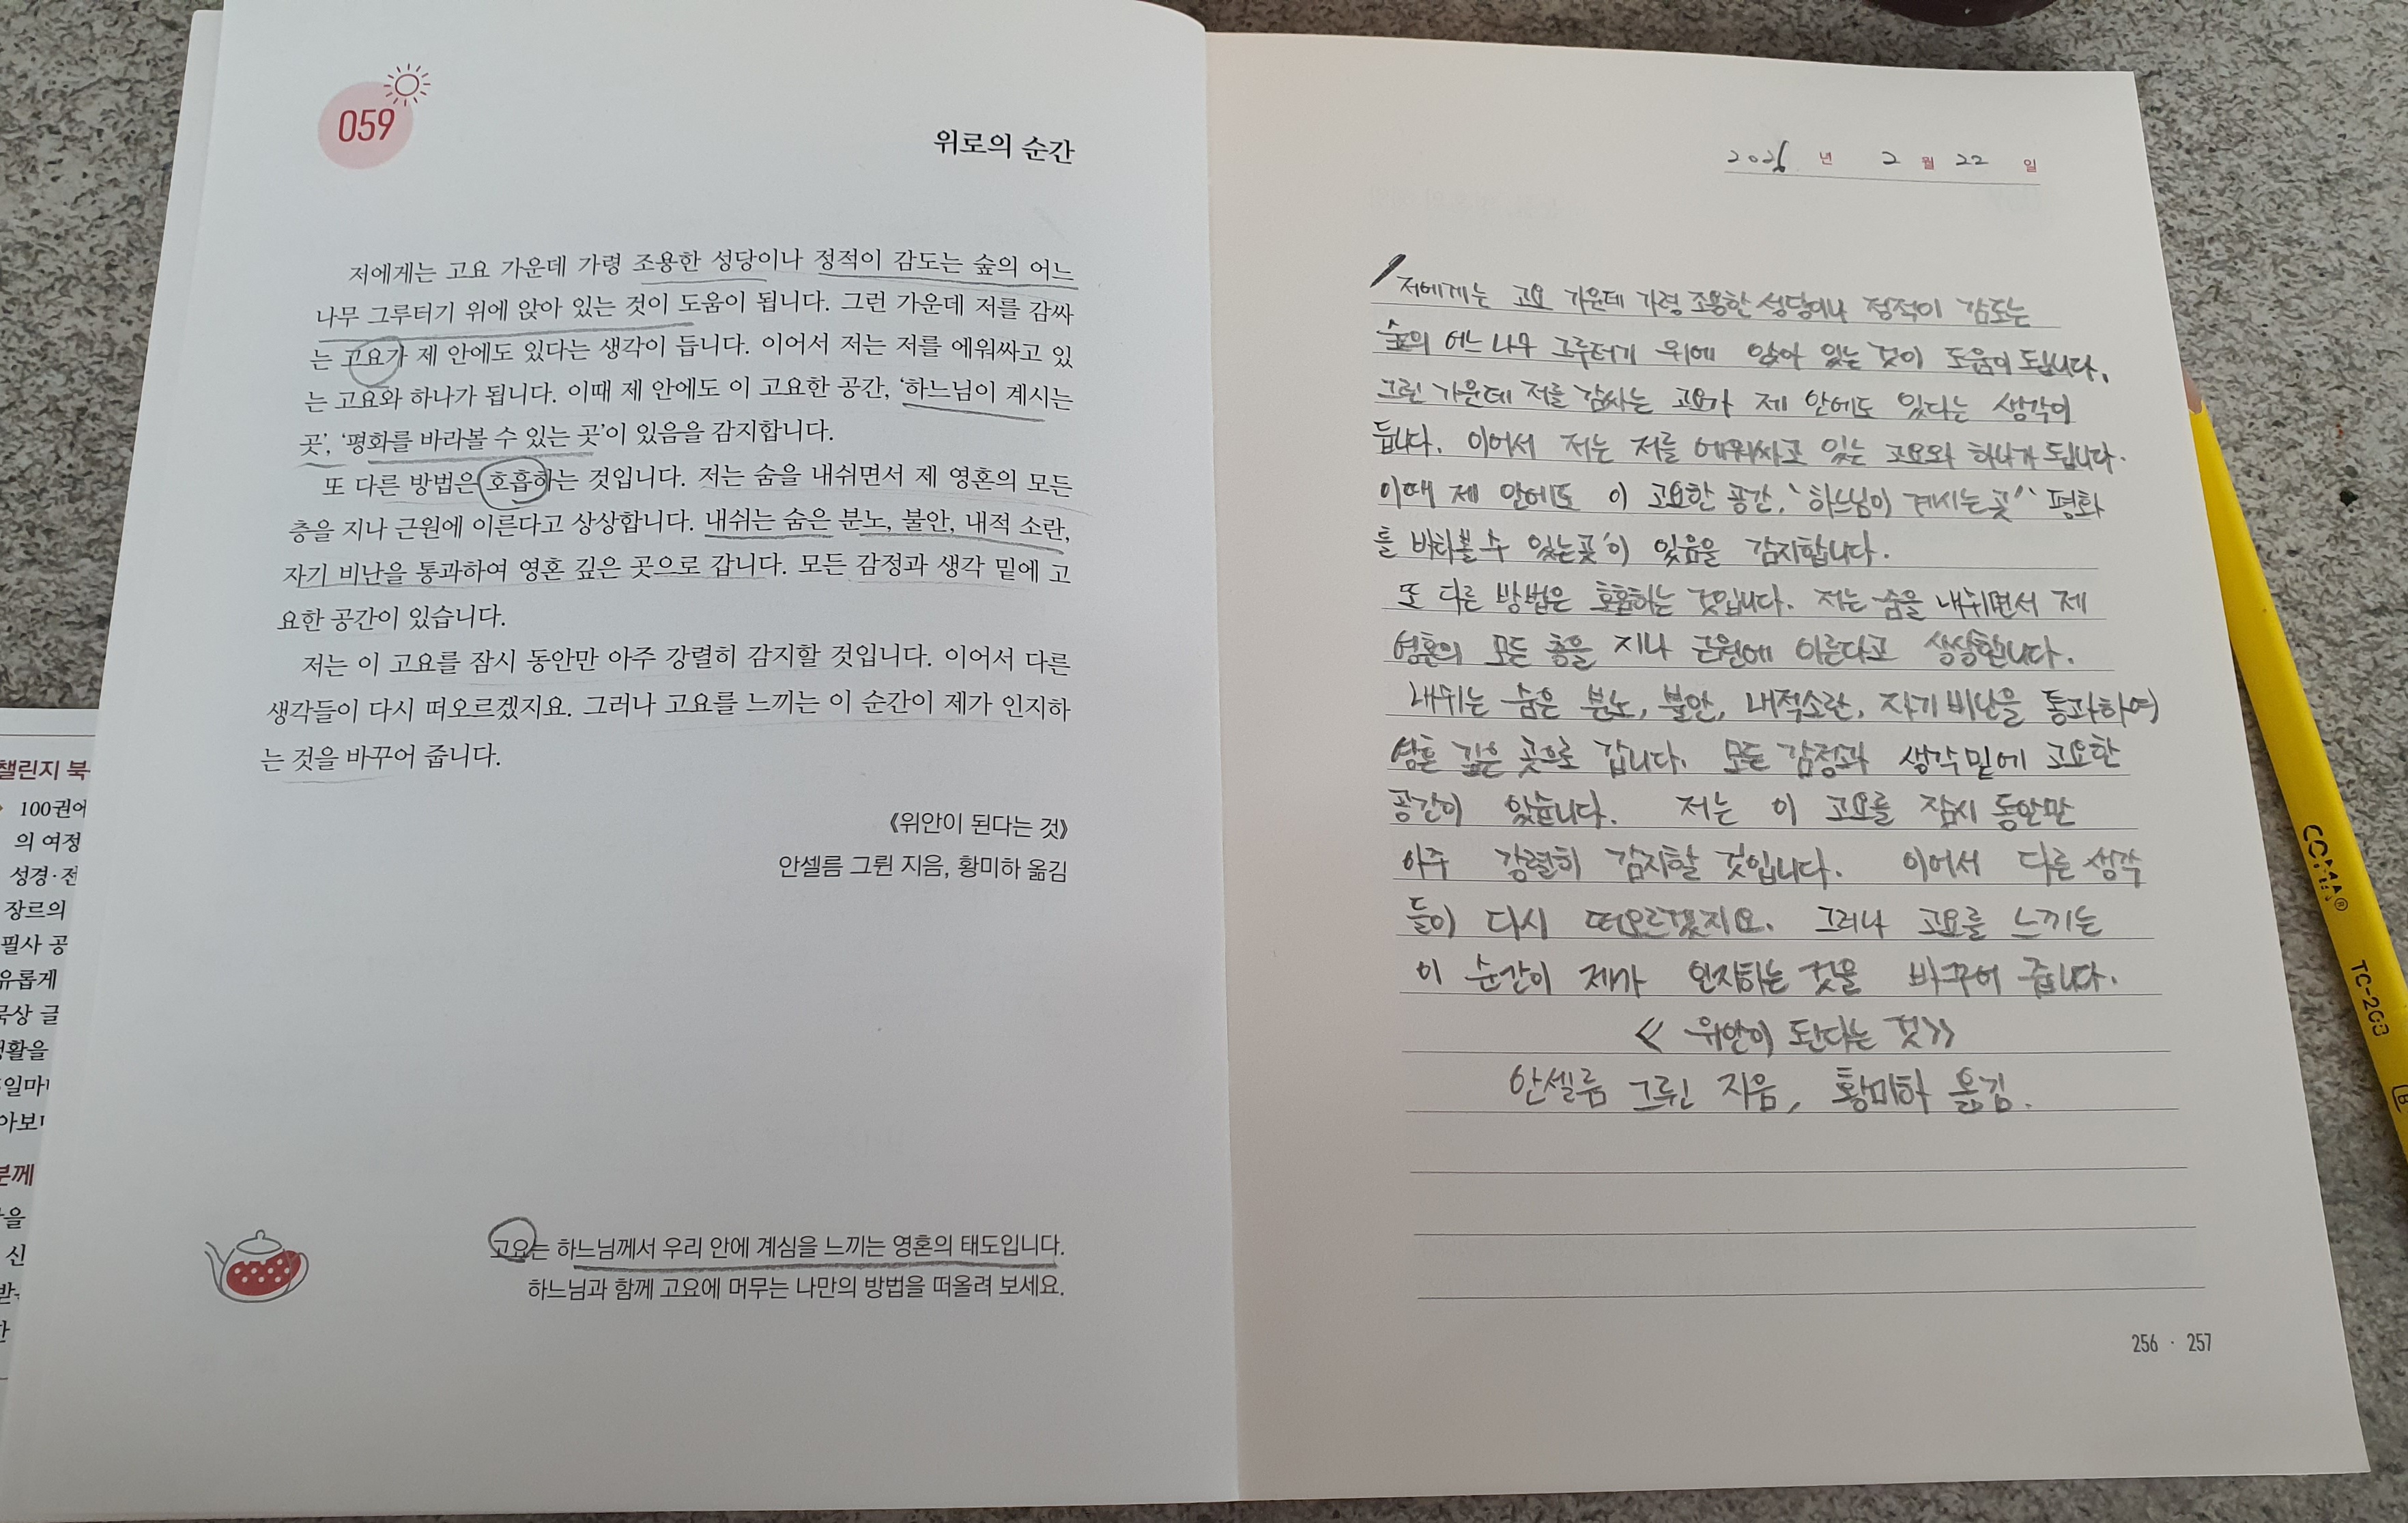 059
위로의 순간
저에게는 고요 가운데 가령 조용한 성당이나 정적이 감도는 숲의 어느
나무 그루터기 위에 앉아 있는 것이 도움이 됩니다. 그런 가운데 저를 감싸
는 고요가 제 안에도 있다는 생각이 듭니다. 이어서 저는 저를 에워싸고 있
는 고요와 하나가 됩니다. 이때 제 안에도 이 고요한 공간, ‘하느님이 계시는
곳’, ‘평화를 바라볼 수 있는 곳’이 있음을 감지합니다.
또 다른 방법은 호흡하는 것입니다. 저는 숨을 내쉬면서 제 영혼의 모든
층을 지나 근원에 이른다고 상상합니다. 내쉬는 숨은 분노, 불안, 내적 소란,
자기 비난을 통과하여 영혼 깊은 곳으로 갑니다. 모든 감정과 생각 밑에 고
요한 공간이 있습니다.
저는 이 고요를 잠시 동안만 아주 강렬히 감지할 것입니다. 이어서 다른
생각들이 다시 떠오르겠지요. 그러나 고요를 느끼는 이 순간이 제가 인지하
는 것을 바꾸어 줍니다.
《위안이 된다는 것》
안셀름 그륀 지음, 황미하 옮김
고요는 하느님께서 우리 안에 계심을 느끼는 영혼의 태도입니다.
하느님과 함께 고요에 머무는 나만의 방법을 떠올려 보세요.
2026 년 2 월 22 일
저에게는 고요 가운데 가령 조용한 성당이나 정적이 감도는
숲의 어느 나무 그루터기 위에 앉아 있는 것이 도움이 됩니다.
그런 가운데 저를 감싸는 고요가 제 안에도 있다는 생각이
듭니다. 이어서 저는 저를 에워싸고 있는 고요와 하나가 됩니다.
이때 제 안에도 이 고요한 공간, ‘하느님이 계시는 곳’ ‘평화
를 바라볼 수 있는 곳’이 있음을 감지합니다.
또 다른 방법은 호흡하는 것입니다. 저는 숨을 내쉬면서 제
영혼의 모든 층을 지나 근원에 이른다고 상상합니다.
내쉬는 숨은 분노, 불안, 내적소란, 자기 비난을 통과하여
영혼 깊은 곳으로 갑니다. 모든 감정과 생각 밑에 고요한
공간이 있습니다. 저는 이 고요를 잠시 동안만
아주 강렬히 감지할 것입니다. 이어서 다른 생각
들이 다시 떠오르겠지요. 그러나 고요를 느끼는
이 순간이 제가 인지하는 것을 바꾸어 줍니다.
《위안이 된다는 것》
안셀름 그륀 지음, 황미하 옮김.
256 · 257
챌린지 북
100권에
의 여정
성경·전
장르의
필사 공
유롭게
묵상 글
생활을
COMA® TC-203